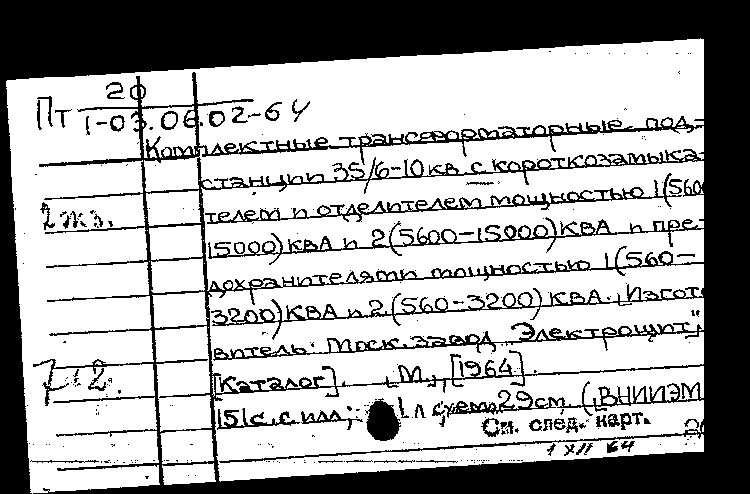 20
Пт 1-03.06.02-64
Комплектные трансформаторные под-
станции 35/6-10 кв с короткозамыка-
2 экз. телем и отделителем мощностью 1(5600
15000) КВА и 2(5600-15000) КВА и пре-
дохранителями мощностью 1(560-
3200) КВА и 2(560-3200) КВА. Изгото
витель: Моск. завод "Электрощит",
[Каталог]. М., [1964].
151 с. с илл; 1 л схема 29 см. (ВНИИЭМ
См. след. карт.
1 XII 64